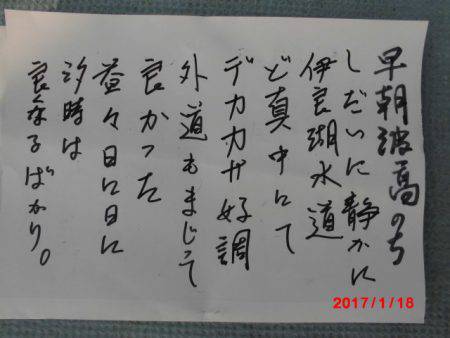 早朝波高のち
しだいに静かに
伊良湖水道
ど真中にて
デカカサ好調
外道もまじって
良かった
益々日に日に
汐時は
良くなるばかり。
2017/1/18